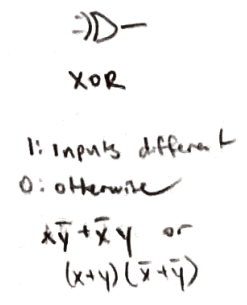 XOR
1: inputs different
0: otherwise
xȳ + x̄y or
(x+y)(x̄+ȳ)